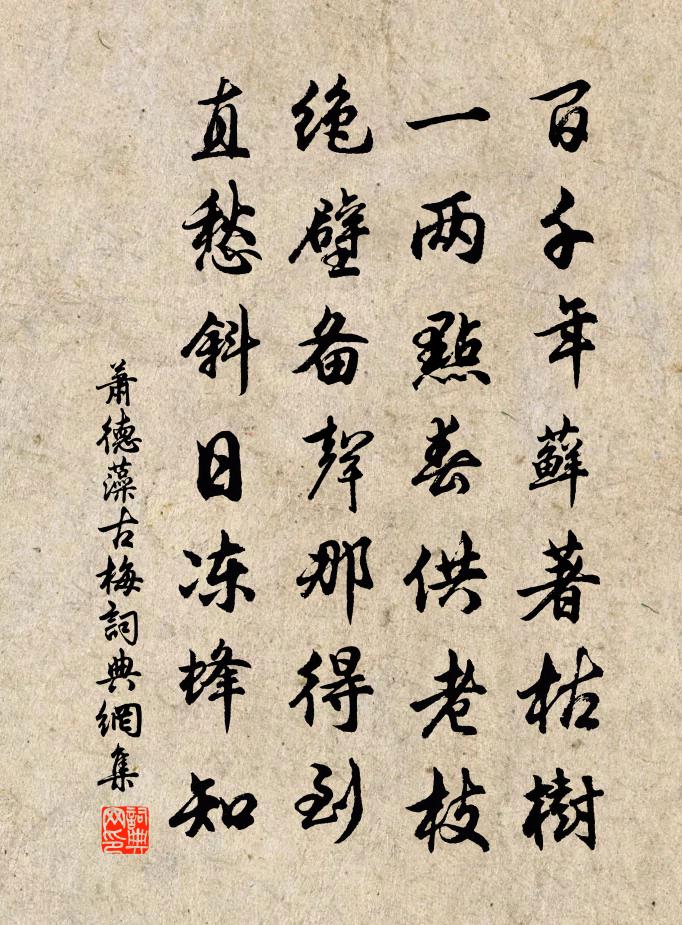 百千年蘚著枯樹
一两點春供老枝
绝壁备聲那得到
直愁斜日冻蜂知
蕭德藻古梅詞典網集
詞典网印